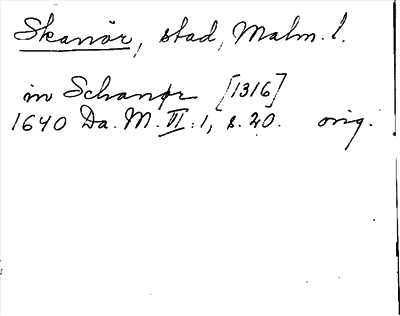 Skanör, stad, Malm. l.
in Schanør [1316]
1640 Da. M. III: 1, s. 20. orig.